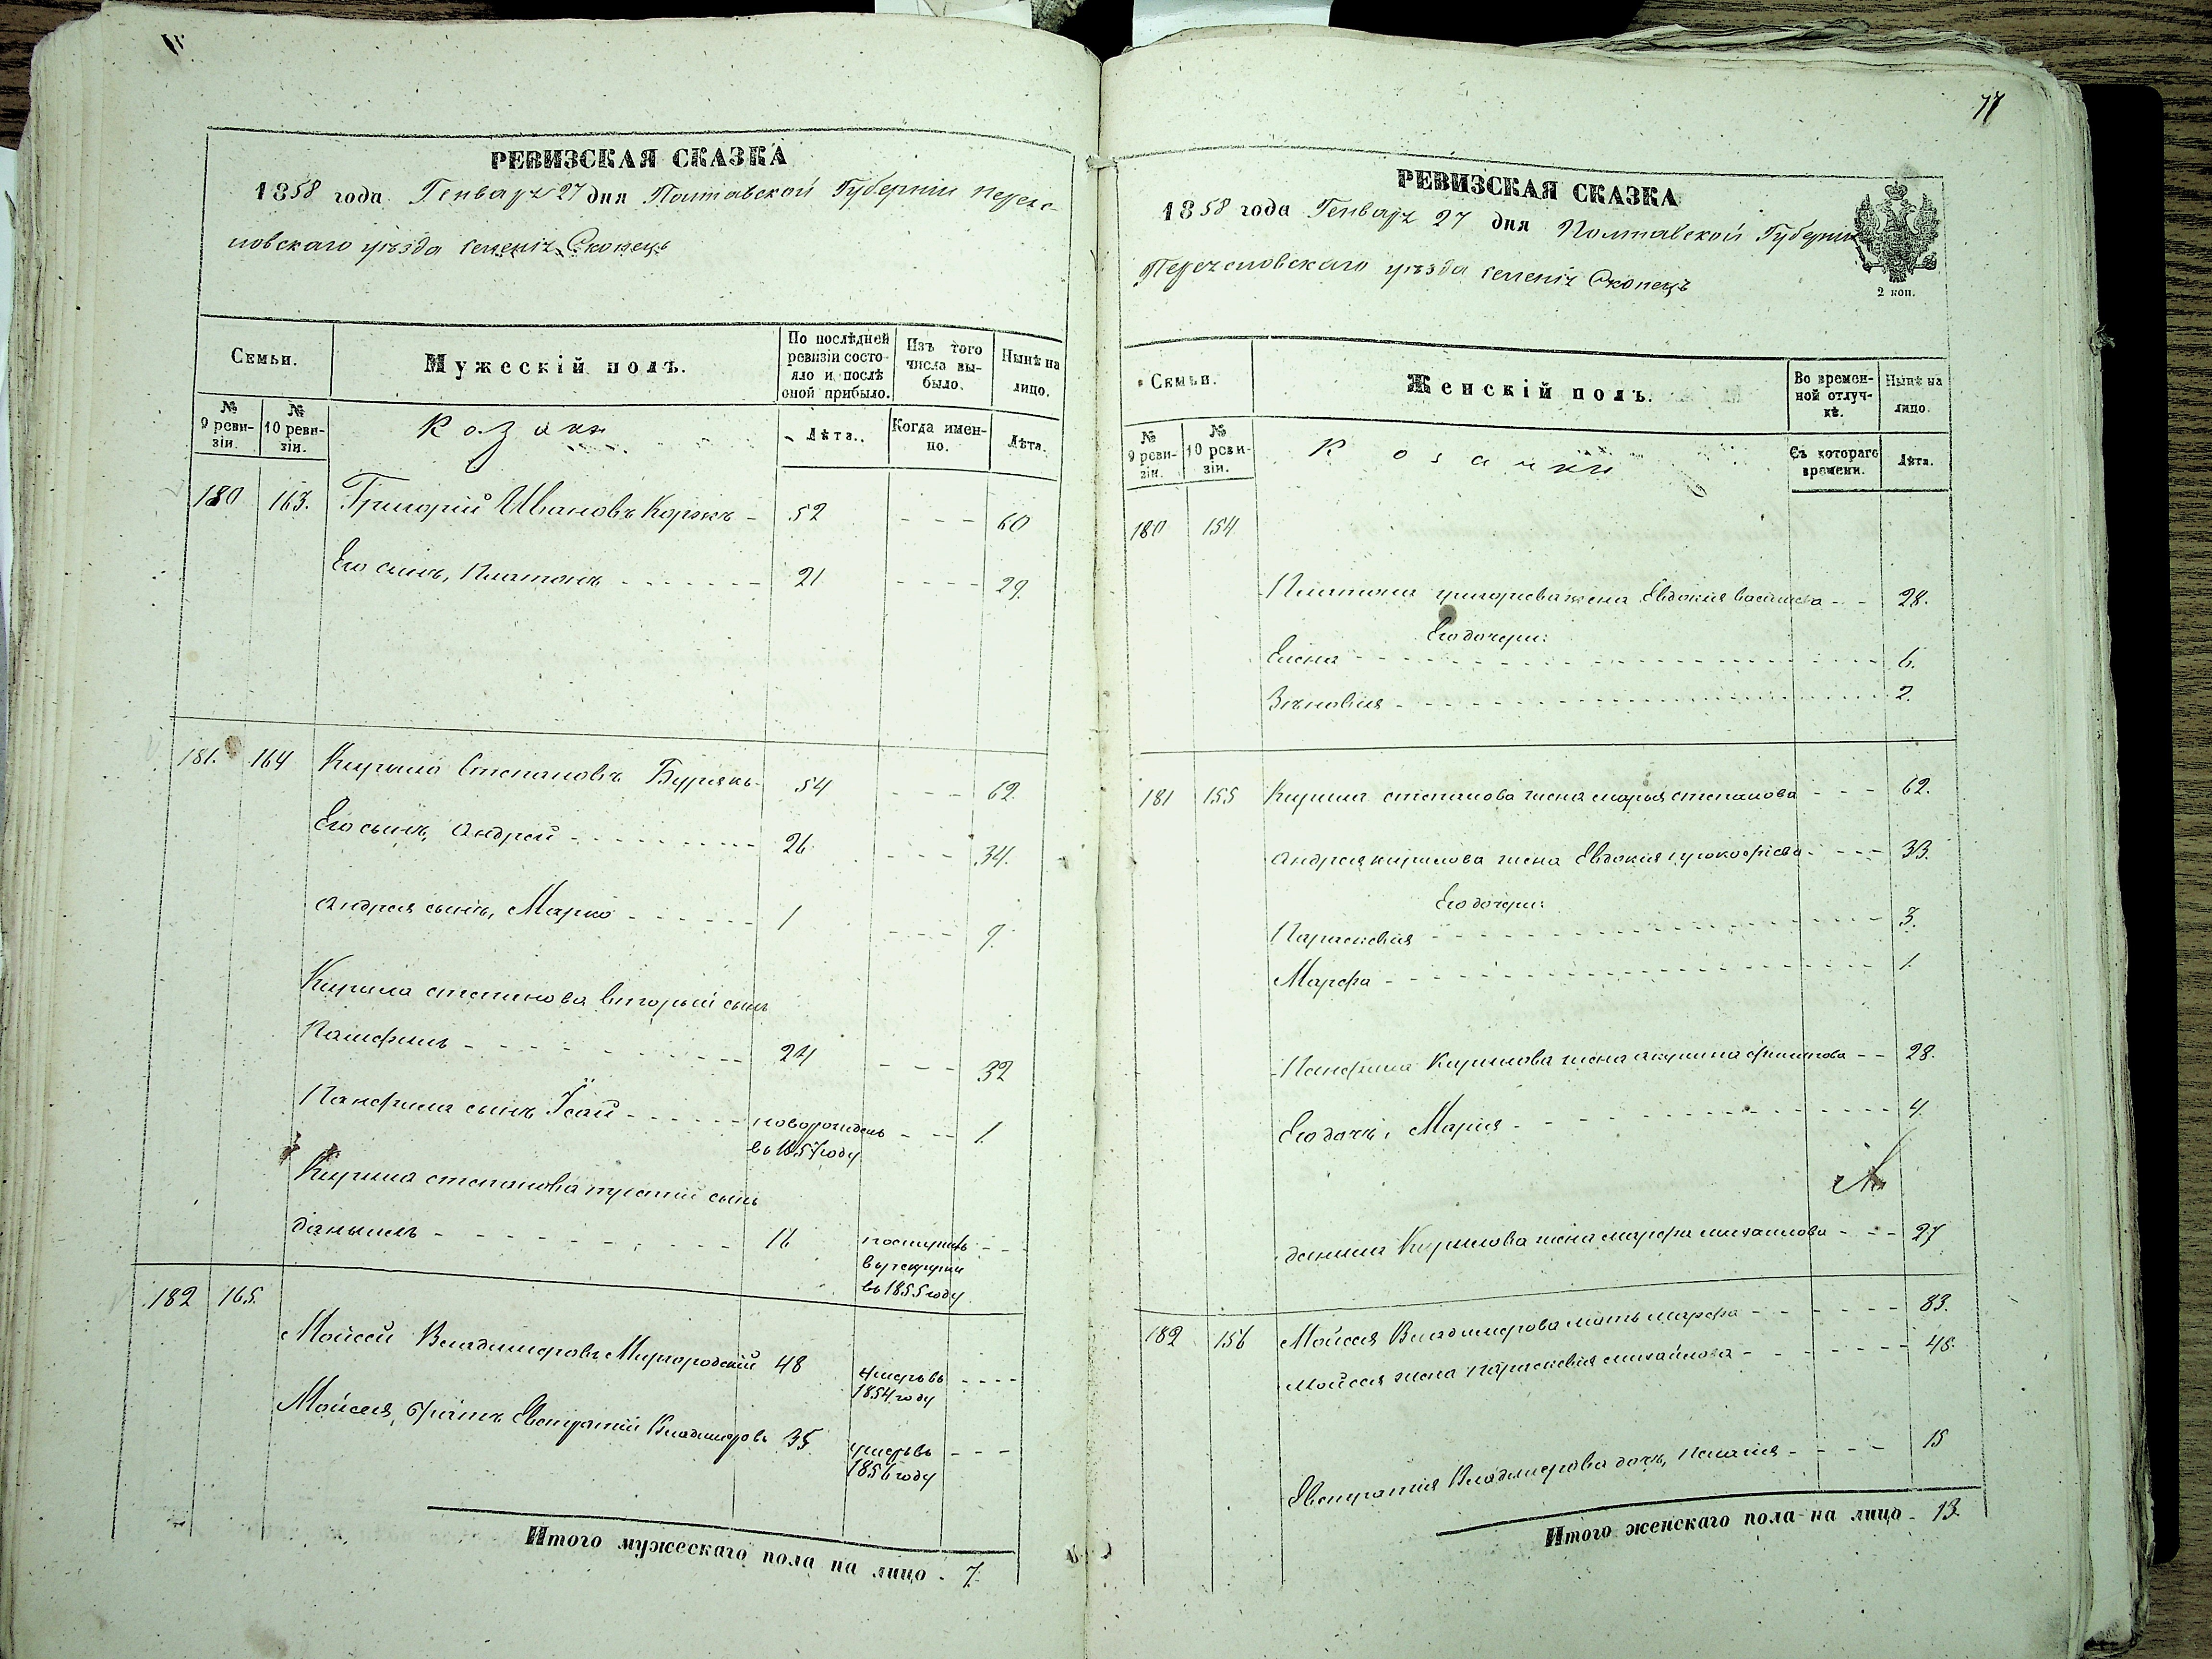 77
РЕВИЗСКАЯ СКАЗКА
1858 года Генваря 27 дня Полтавской Губернии Перея-
словского уѣзда селенія Скопецъ
Семьи.
Мужескій полъ.
По послѣдней ревизіи состояло и послѣ оной прибыло.
Изъ того числа выбыло.
Нынѣ на лицо.
№ 9 ревизіи.
№ 10 ревизіи.
Козаки
Лѣта.
Когда именно.
Лѣта.
180 163. Григорій Ивановъ Коржъ - 52 - - - 60
Его сынъ, Платонъ - - - - - - - 21 - - - - 29.
181. 164 Кирило Степановъ Бурякъ - 54 - - - 62.
Его сынъ, Андрей - - - - - - - - 26 - - - - 34.
Андрея сынъ, Марко - - - - - - 1 - - - - 9.
Кирила степанова вторый сынъ
Памфилъ - - - - - - - - - - - 24 - - - 32
Панфила сынъ Їсай - - - - - новорожденъ - - - 1.
въ 1857 году
Кирила степанова третій сынъ
даныилъ - - - - - - - - - - - 16 поступилъ - - -
въ рекруты
въ 1855 году
182 165. Мойсей Владимеровъ Миргородскій 48 умеръ въ - - - -
1854 году
Мойсея, братъ Евстратій Владимеровъ 35 умеръ въ - - -
1856 году
Итого мужескаго пола на лицо - 7.
РЕВИЗСКАЯ СКАЗКА
1858 года Генваря 27 дня Полтавской Губернии
Переясловского уѣзда селенія Скопецъ
2 коп.
Семьи.
Женскій полъ.
Во временной отлучкѣ.
Нынѣ на лицо.
№ 9 ревизіи.
№ 10 ревизіи.
Козачки
Съ котораго времени.
Лѣта.
180 154
Платона григорева жена Евдокия василева - - 28.
Его дочери:
Елена - - - - - - - - - - - - 6.
Зѣновия - - - - - - - - - - - - 2.
181 155 Кирила степанова жена марья степанова - - - 62.
Андрея кирилова жена Евдокия прокофіева - - - - 33.
Его дочери:
Параскевия - - - - - - - - - - - - 3.
Марфа - - - - - - - - - - - - 1.
Панфила Кирилова жена акулина филипова - - 28.
Его дочь, Мария - - - - - - - - - - - - 4.
данила Кирилова жена марфа михаилова - - - 27
182 156 Мойсея Владимерова мать марфа - - - - - - 83.
Мойсея жена параскевия михайлова - - - - - - 45.
Евстратия Владимерова дочь, пелагия - - - - 15
Итого женскаго пола на лицо - 13.